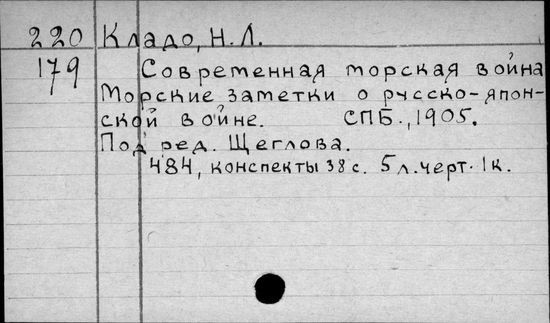 220 Кладо, Н. Л.
179 Современная морская война
Морские заметки о русско-япон-
ской войне. СПБ., 1905.
Под ред. Щеглова.
484, конспекты 38 с. 5 л. черт. 1 к.